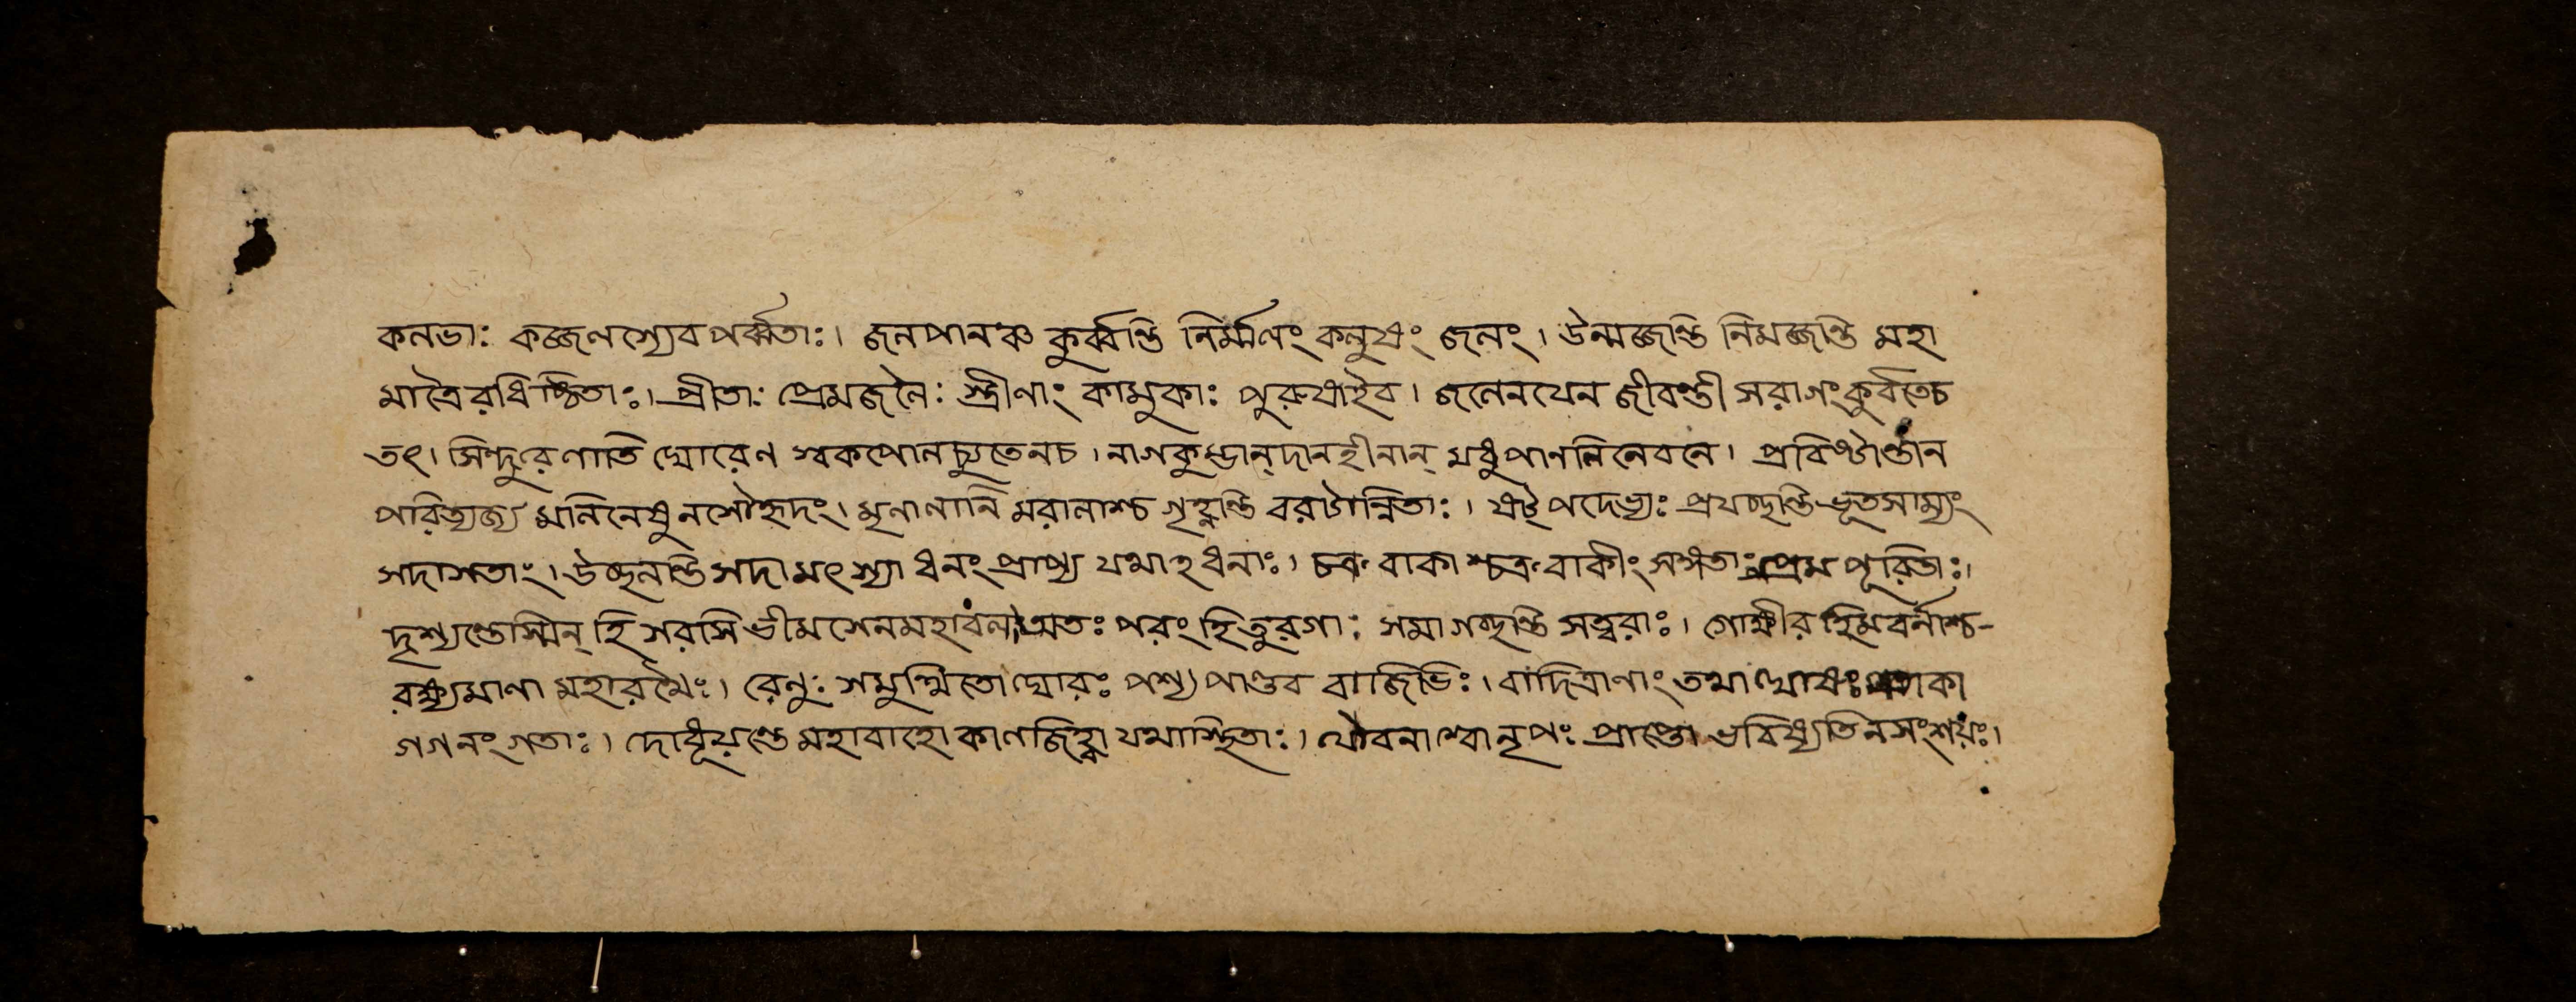 কলভাঃ কজ্জলস্যেব পর্ব্বতাঃ। জলপানঞ্চ কুর্ব্বন্তি নির্ম্মলং কলুষং জলং। উন্মজ্জন্তি নিমজ্জন্তি মহা
মাত্রৈরধিষ্ঠিতাঃ। প্রীতাঃ প্রেমজলৈঃ স্ত্রীণাং কামুকাঃ পুরুষাইব। জলেনযেন জীবন্তী সরাগং কুর্বতেচ
তৎ। সিন্দুরেণাতি ঘোরেণ স্বকপোলচ্যুতেনচ। নাগকুম্ভান্দানহীনান্ মধুপানলিনেবনে। প্রবিষ্টাস্তান
পরিত্যজ্য মলিনেষু নসৌহৃদং। মৃণালানি মরালাশ্চ গৃহ্ণন্তি বরটান্বিতাঃ। ষট্পদেভ্যঃ প্রযচ্ছন্তি ভূতসাম্যং
সদাসতাং। উচ্ছলন্তি সদা মৎস্যা ধনং প্রাপ্য যথাহধনাঃ। চক্রবাকাশ্চক্রবাকীং সঙ্গতাঃ প্রেম পূরিতাঃ।
দৃশ্যন্তেস্মিন্ হি সরসি ভীমসেনমহাবল। অতঃ পরং হি তুরগাঃ সমাগচ্ছন্তি সত্বরাঃ। গোক্ষীর হিমবর্নাশ্চ-
রক্ষ্যমাণা মহারথৈঃ। রেনুঃ সমুত্থিতো ঘোরঃ পশ্য পাণ্ডব বাজিভিঃ। বাদিত্রাণাং তথা ঘোষঃ পতাকা
গগনং গতাঃ। দোধূয়ন্তে মহাবাহো কালজিহ্বা যথাস্থিতাঃ। যৌবনাশ্বো নৃপঃ প্রাপ্তো ভবিষ্যতি নসংশয়ঃ।